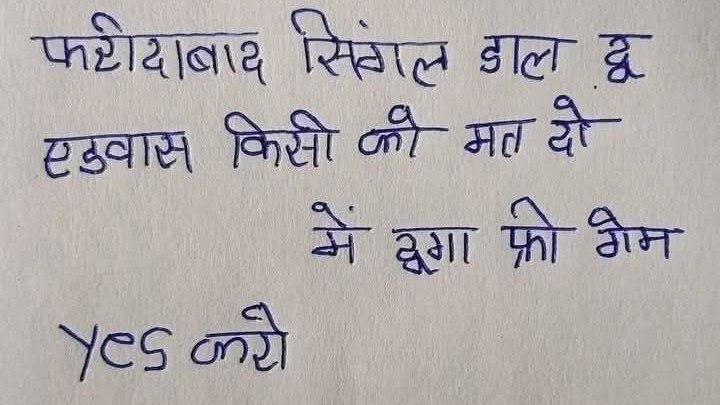 फरीदाबाद सिंगल डाल दू
एडवास किसी को मत दो
में दूगा फ्री गेम
yes करो